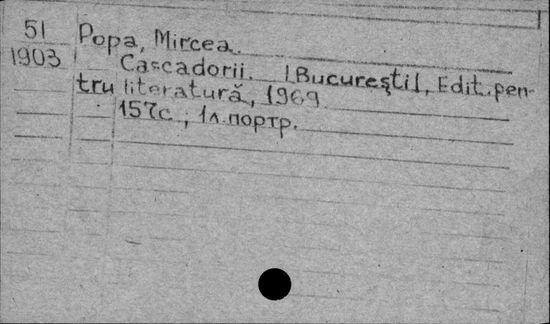 51 Popa, Mircea.
1903 Cascadorii. |Bucureşti|, Edit. pen-
tru literatură, 1969.
157с., 1л. портр.